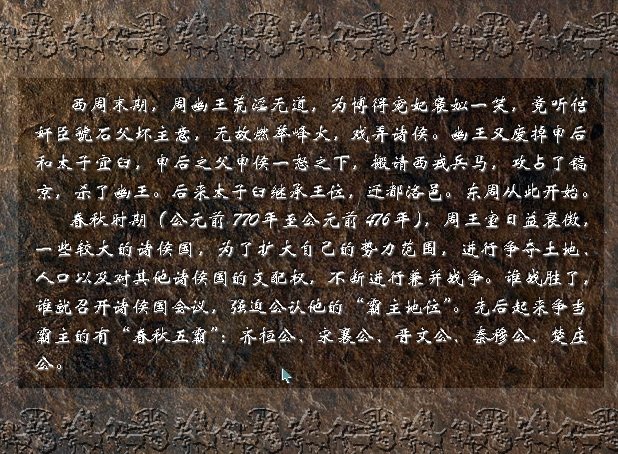 西周末期，周幽王荒淫无道，为博得宠妃褒姒一笑，竟听信
奸臣虢石父坏主意，无故燃举烽火，戏弄诸侯。幽王又废掉申后
和太子宜臼，申后之父申侯一怒之下，搬请西戎兵马，攻占了镐
京，杀了幽王。后来太子臼继承王位，迁都洛邑。东周从此开始。
春秋时期（公元前770年至公元前476年），周王室日益衰微，
一些较大的诸侯国，为了扩大自己的势力范围，进行争夺土地、
人口以及对其他诸侯国的支配权，不断进行兼并战争。谁战胜了，
谁就召开诸侯国会议，强迫公认他的“霸主地位”。先后起来争当
霸主的有“春秋五霸”：齐桓公、宋襄公、晋文公、秦穆公、楚庄
公。